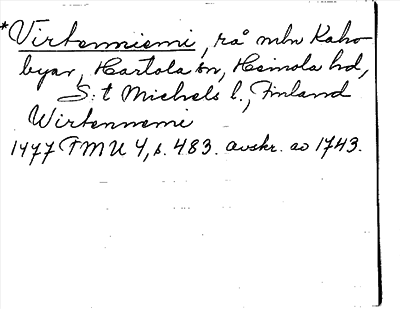 *Virtenniemi, rå mln Kaho-
byar, Hartola sn, Heinola hd,
S:t Michels l., Finland
Wirtennemi
1477 FMU 4, s. 483. avskr. av 1743.